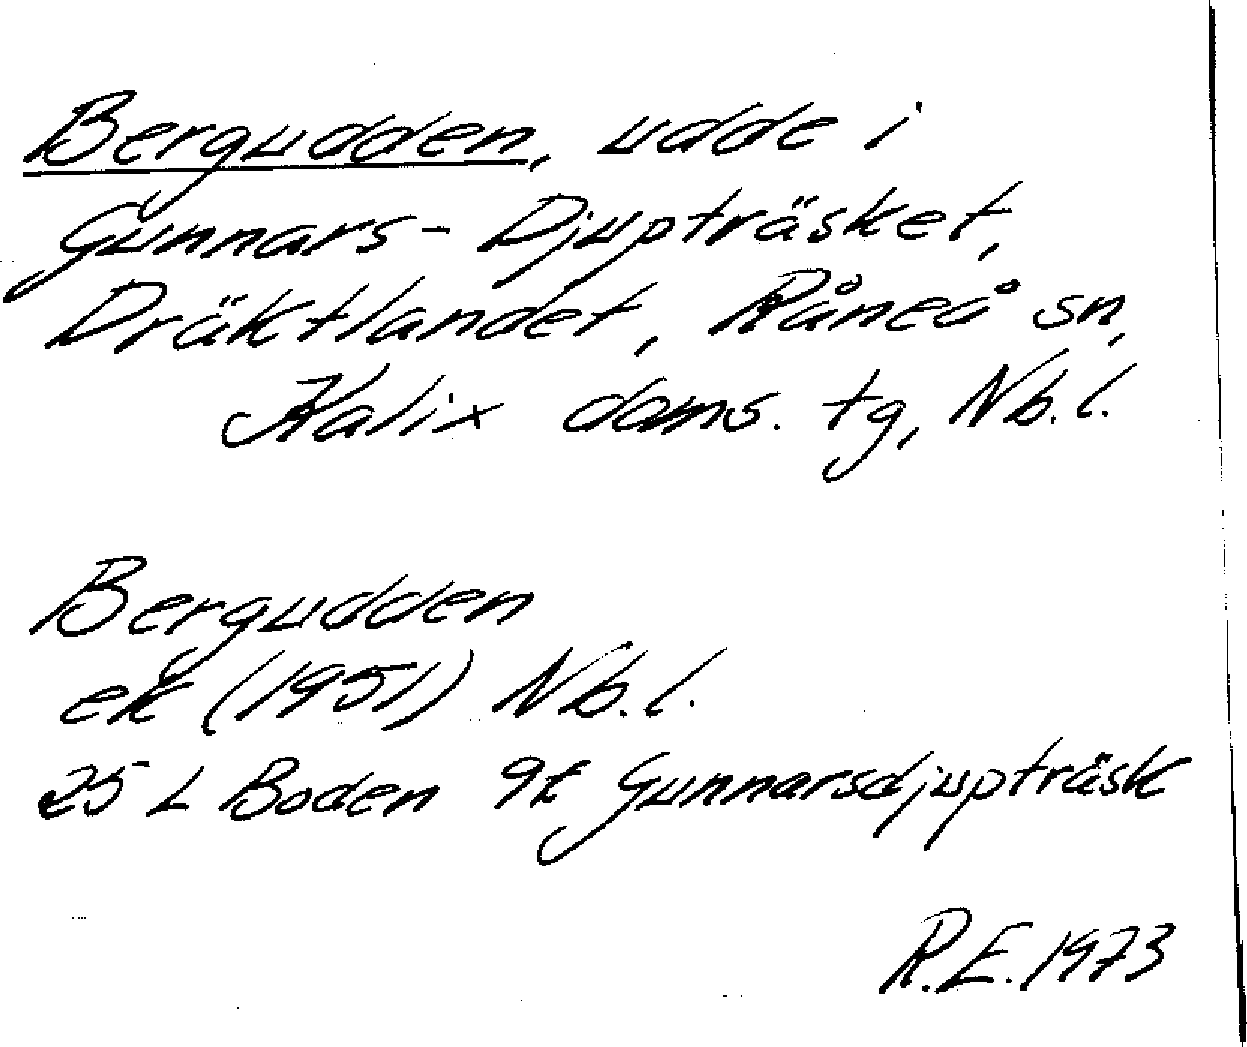 Bergudden, udde i
Gunnars-Djupträsket,
Dräktlandet, Råneå sn,
Kalix doms. tg, Nb.l.
Bergudden
ek (1951) Nb.l.
25 L Boden 9f Gunnarsdjupträsk
R.E. 1973